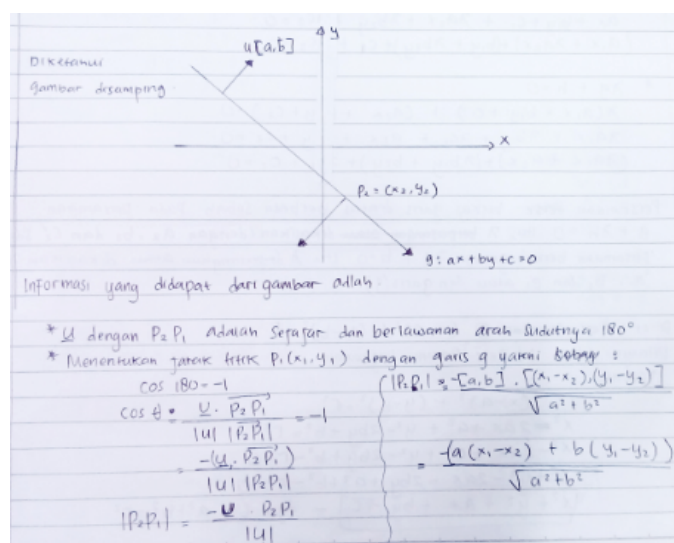 Diketahui
gambar disamping
u[a,b]
y
x
P₂ = (x₂, y₂)
g: ax + by + c = 0
Informasi yang didapat dari gambar adlah
* u dengan P₂P₁ adalah sejajar dan berlawanan arah sudutnya 180°
* Menentukan jarak titik P₁(x₁, y₁) dengan garis g yakni sebagi :
cos 180 = -1
cos θ = u . P₂P₁ / |u| |P₂P₁| = -1
= -(u . P₂P₁) / |u| |P₂P₁|
|P₂P₁| = -u . P₂P₁ / |u|
|P₂P₁| = -[a,b] . [(x₁-x₂),(y₁-y₂)] / √a²+b²
= -(a(x₁-x₂) + b(y₁-y₂)) / √a²+b²